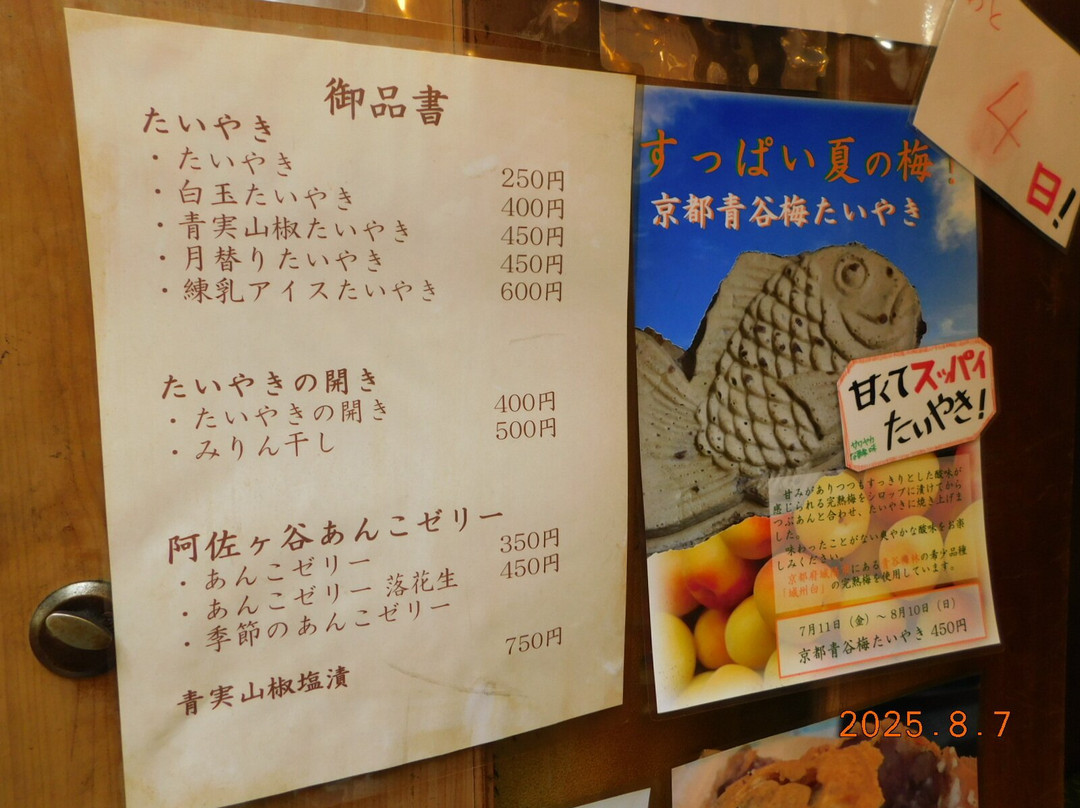 御品書
たいやき
・たいやき 250円
・白玉たいやき 400円
・青実山椒たいやき 450円
・月替りたいやき 450円
・練乳アイスたいやき 600円
たいやきの開き
・たいやきの開き 400円
・みりん干し 500円
阿佐ヶ谷あんこゼリー
・あんこゼリー 350円
・あんこゼリー 落花生 450円
・季節のあんこゼリー
青実山椒塩漬 750円
すっぱい夏の梅!
京都青谷梅たいやき
甘くてスッパイ
たいやき!
甘みがありつつもすっきりとした酸味が
感じられる完熟梅をシロップに漬けてから
つぶあんと合わせ、たいやきに焼き上げま
した。
味わったことがない爽やかな酸味をお楽
しみください。
京都府城陽市にある青谷梅林の希少品種
「城州白」の完熟梅を使用しています。
7月11日(金)~8月10日(日)
京都青谷梅たいやき 450円
あと
4
日!
2025.8.7